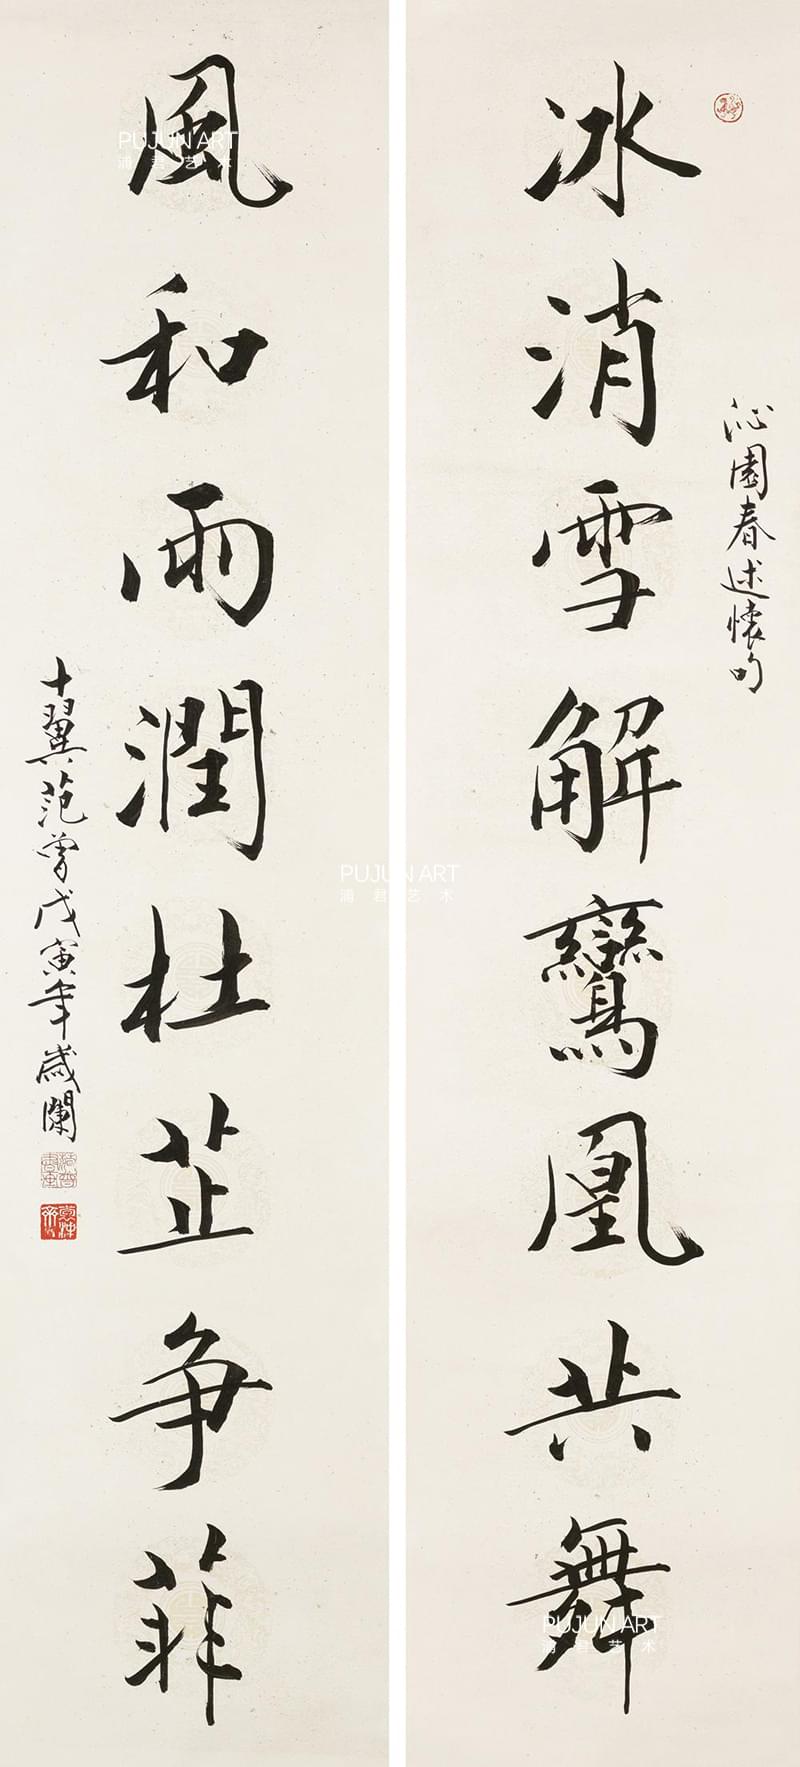 沁園春述懷句
冰消雪解鸞凰共舞
風和雨潤杜芷争菲
十翼范曾戊寅年歲闌
PUJUN ART
浦君艺术
PUJUN ART
浦君艺术
PUJUN ART
浦君艺术